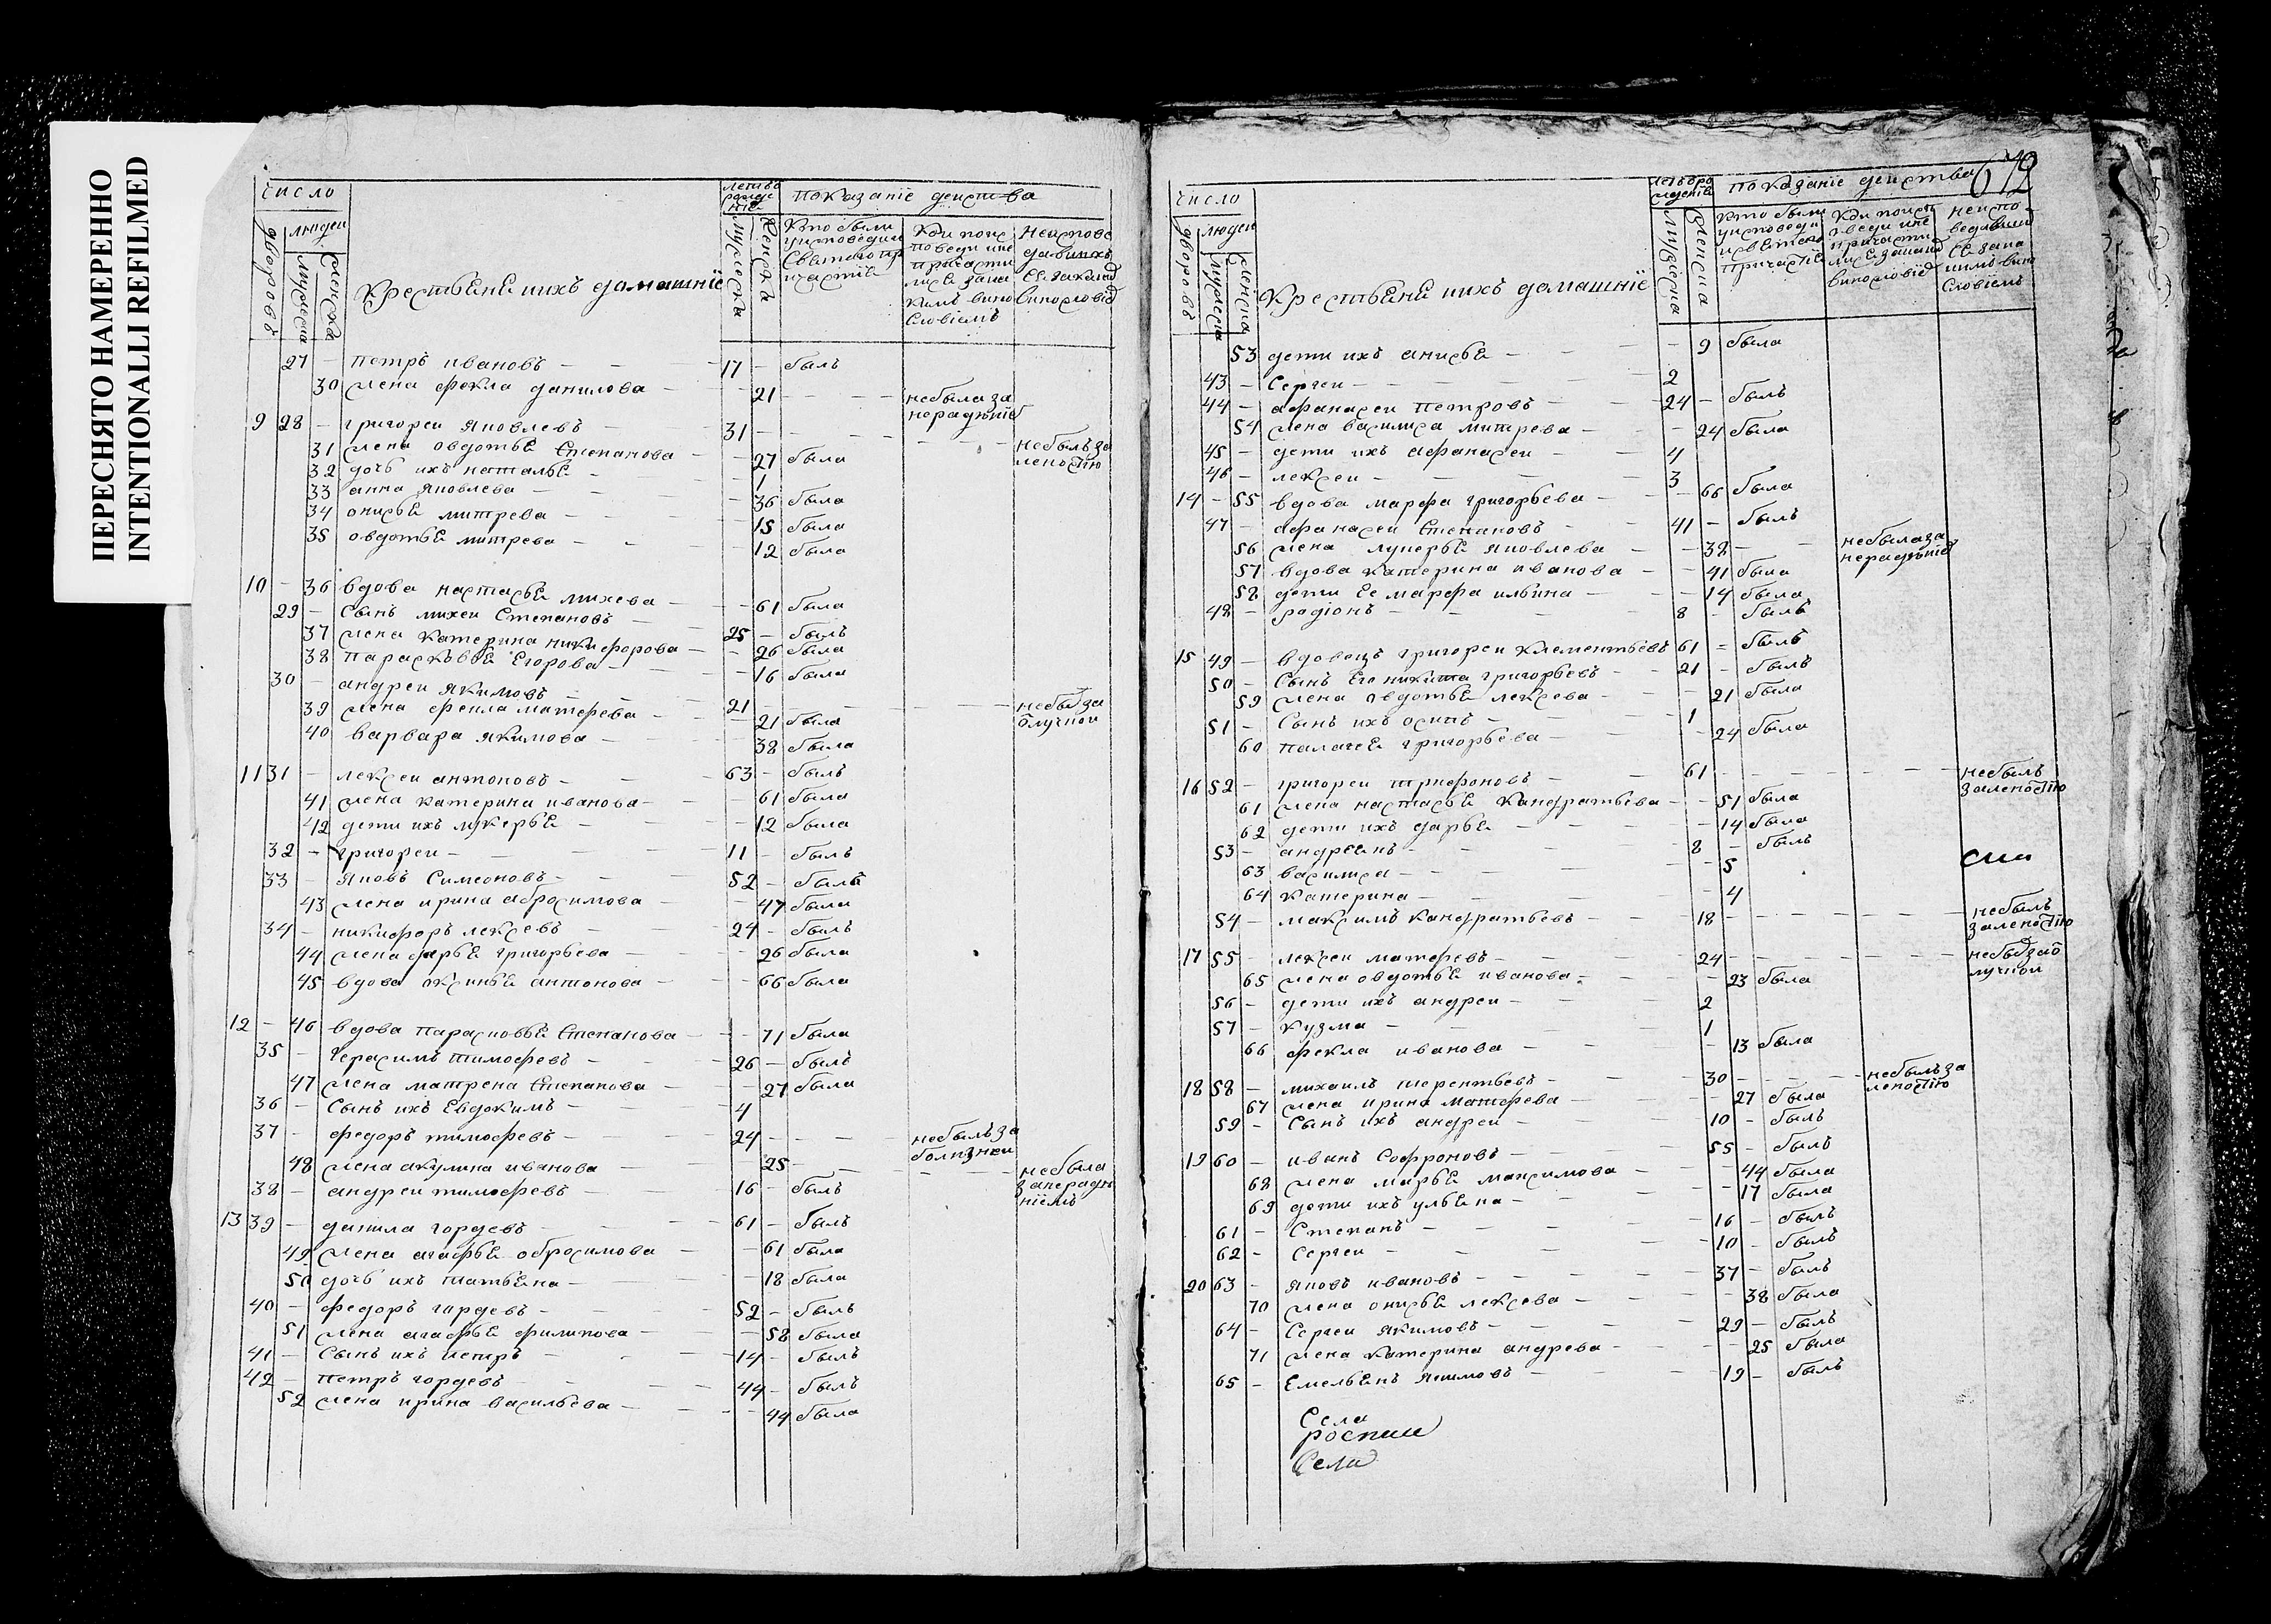 ПЕРЕСНЯТО НАМЕРЕННО
INTENTIONALLI REFILMED
число
людеи
дворовъ
мужеска
женска
крестьянѣ ихъ домашнiе
мужеска
женска
показанiе деиства
27 — петръ ивановъ — 17 — былъ
30 жена фекла данилова — 21 — небыла за
нерадѣнiе
9 28 — григореи яковлевъ — 31 — небылъ за
леностiю
31 жена овдотья степанова — 27 была
32 дочь ихъ наталья — 1
33 анна яковлева — 36 была
34 онисья митрева — 15 была
35 овдотья митрева — 12 была
10 — 36 вдова настасья михева — 61 была
29 — сынъ михеи степановъ — 25 — былъ
37 жена катерина никифорова — 26 была
38 парасковья егорова — 16 была
30 — андреи якимовъ — 21 — небы за
39 жена фекла матфева — 21 была
40 варвара якимова — 38 была
11 31 — лексеи антоновъ — 63 — былъ
41 жена катерина иванова — 61 была
42 дети ихъ лукерья — 12 была
32 — григореи — 11 — былъ
33 — яковъ симеоновъ — 52 — былъ
43 жена ирина абросимова — 47 была
34 — никифоръ лексевъ — 24 — былъ
44 жена дарья григорьева — 26 была
45 вдова оксинья антонова — 66 была
12 — 46 вдова парасковья степанова — 71 была
35 — герасимъ тимофевъ — 26 — былъ
47 жена матрена степанова — 27 была
36 — сынъ ихъ евдокимъ — 4
37 — федоръ тимофевъ — 24 — небылъ за
болизнеи
48 жена акулина иванова — 25 — небыла
за нерадѣ
нiемъ
38 — андреи тимофевъ — 16 — былъ
13 39 — данила гордевъ — 61 — былъ
49 жена агафья обросимова — 61 была
50 дочь ихъ татьяна — 18 была
40 — федоръ гордевъ — 52 — былъ
51 жена агафья филипова — 58 была
41 — сынъ ихъ петръ — 14 — былъ
42 — петръ гордевъ — 44 — былъ
52 жена ирина васильева — 44 была
672
число
людеи
дворовъ
мужеска
женска
крестьянѣ ихъ домашнiе
мужеска
женска
показанiе деиства
53 дети ихъ анисья — 9 была
43 — сергеи — 2
44 — афанасеи петровъ — 24 — былъ
54 жена василиса митрева — 24 была
45 — дети ихъ афанасеи — 4
46 — лексеи — 3
14 — 55 вдова марфа григорьева — 66 была
47 — афанасеи степановъ — 41 — былъ
56 жена лукерья яковлева — 38 — небыла за
нерадѣнiе
57 вдова катерина иванова — 41 была
58 дети ее марфа ильина — 14 была
48 — родiонъ — 8 — былъ
15 49 — вдовецъ григореи клементьевъ 61 — былъ
50 — сынъ его никита григорьевъ — 21 — былъ
59 жена овдотья лексева — 21 была
51 — сынъ ихъ осипъ — 1
60 палагея григорьева — 24 была
16 52 — григореи трифоновъ — 61 — небылъ
за леностiю
61 жена настасья кандратьева — 51 была
62 дети ихъ дарья — 14 была
53 — андреянъ — 8 — былъ
63 василиса — 5
64 катерина — 4
54 — максимъ кандратьевъ — 18 — небылъ
за леностiю
17 55 — лексеи матфевъ — 24 — небы за о
лучкои
65 жена овдотья иванова — 23 была
56 — дети ихъ андреи — 2
57 — кузма — 1
66 фекла иванова — 13 была
18 58 — михаилъ терентьевъ — 30 — небылъ за
леностiю
67 жена ирина матфева — 27 была
59 — сынъ ихъ андреи — 10 — былъ
19 60 — иванъ софроновъ — 55 — былъ
68 жена марья максимова — 44 была
69 дети ихъ ульяна — 17 была
61 — степанъ — 16 — былъ
62 — сергеи — 10 — былъ
20 63 — яковъ ивановъ — 37 — былъ
70 жена онисья лексева — 38 была
64 — сергеи якимовъ — 29 — былъ
71 жена катерина андрева — 25 была
65 — емельянъ якимовъ — 19 — былъ
Села
роспии
Села